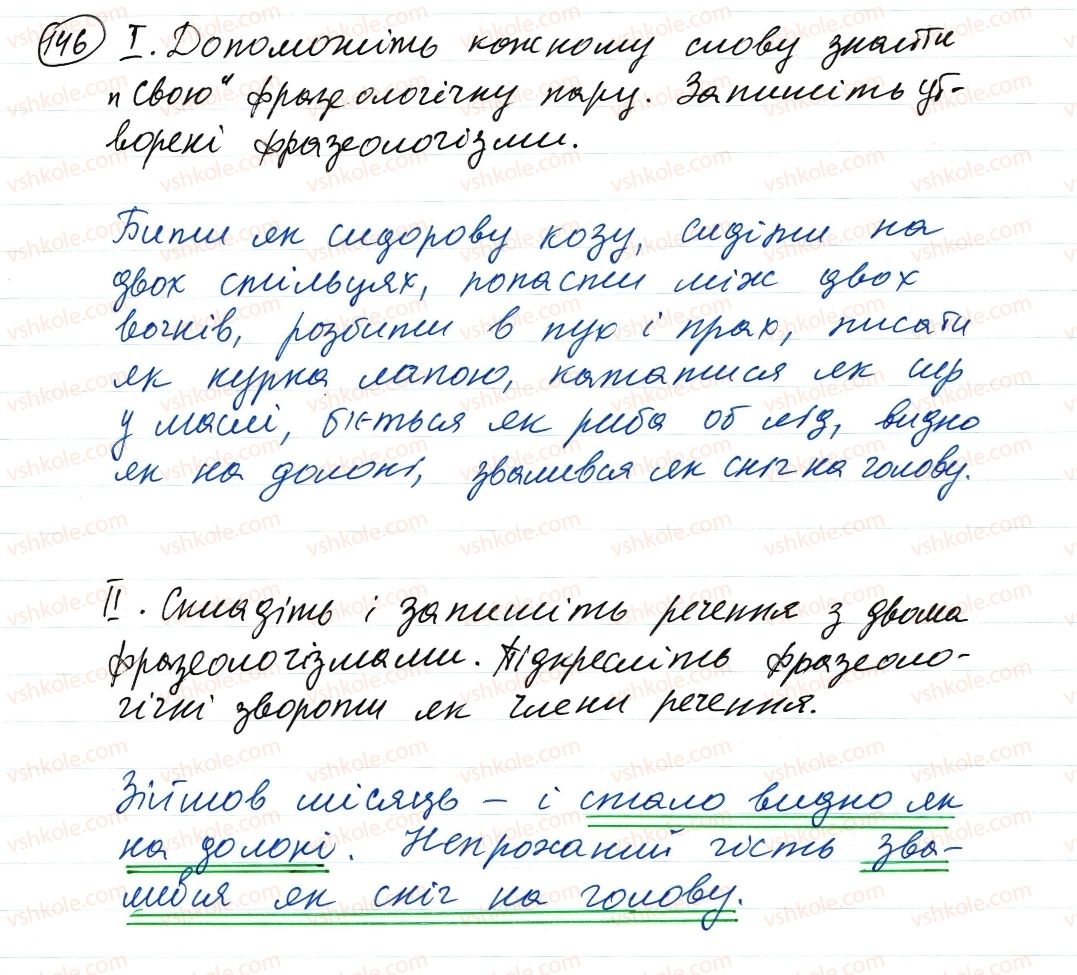 146 I. Допоможіть кожному слову знайти
"свою" фразеологічну пару. Запишіть ут-
ворені фразеологізми.
Бити як сидорову козу, сидіти на
двох стільцях, попасти між двох
вочків, розбити в пух і прах, писати
як курка лапою, кататися як сир
у маслі, б'ється як риба об лід, видно
як на долоні, звалився як сніг на голову.
II. Складіть і запишіть речення з двома
фразеологізмами. Підкресліть фразеоло-
гічні звороти як члени речення.
Зійшов місяць – і стало видно як
на долоні. Непроханий гість зва-
лився як сніг на голову.